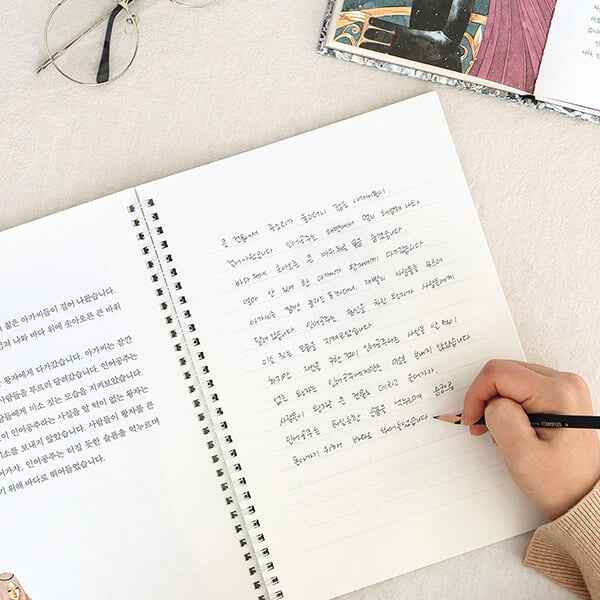 꿇은 아가씨들이 걸어 나왔습니다.
나와 바다 위에 솟아오른 큰 바위
왕자에게 다가갔습니다. 아가씨는 잠깐
사람들을 부르러 달려갔습니다. 인어공주는
사람들에게 미소 짓는 모습을 지켜보았습니다.
것이 인어공주라는 사실을 알 턱이 없는 왕자는
미소를 보내지 않았습니다. 사람들이 왕자를 큰
인어공주는 터질 듯한 슬픔을 억누르며
위해 바다로 뛰어들었습니다.
큰 건물에서 종소리가 울리더니 젊은 아가씨들이
걸어 나왔습니다. 인어공주는 해변에서 멀리 헤엄쳐 나와
바다 위에 솟아오른 큰 바위 뒤로 몸을 숨겼습니다.
얼마 안 되어 한 아가씨가 왕자에게 다가갔습니다.
아가씨는 잠깐 놀라는 듯하더니, 재빨리 사람들을 부르러
달려갔습니다. 인어공주는 정신을 차린 왕자가 사람들에게
미소 짓는 모습을 지켜보았습니다.
하지만 자신을 구한 것이 인어공주라는 사실을 알 턱이
없는 왕자는 인어공주에게는 미소를 보내지 않았습니다.
사람들이 왕자를 큰 건물로 데리고 들어가자,
인어공주는 터질듯한 슬픔을 억누르며 궁궐로
돌아가기 위해 바다로 뛰어들었습니다.